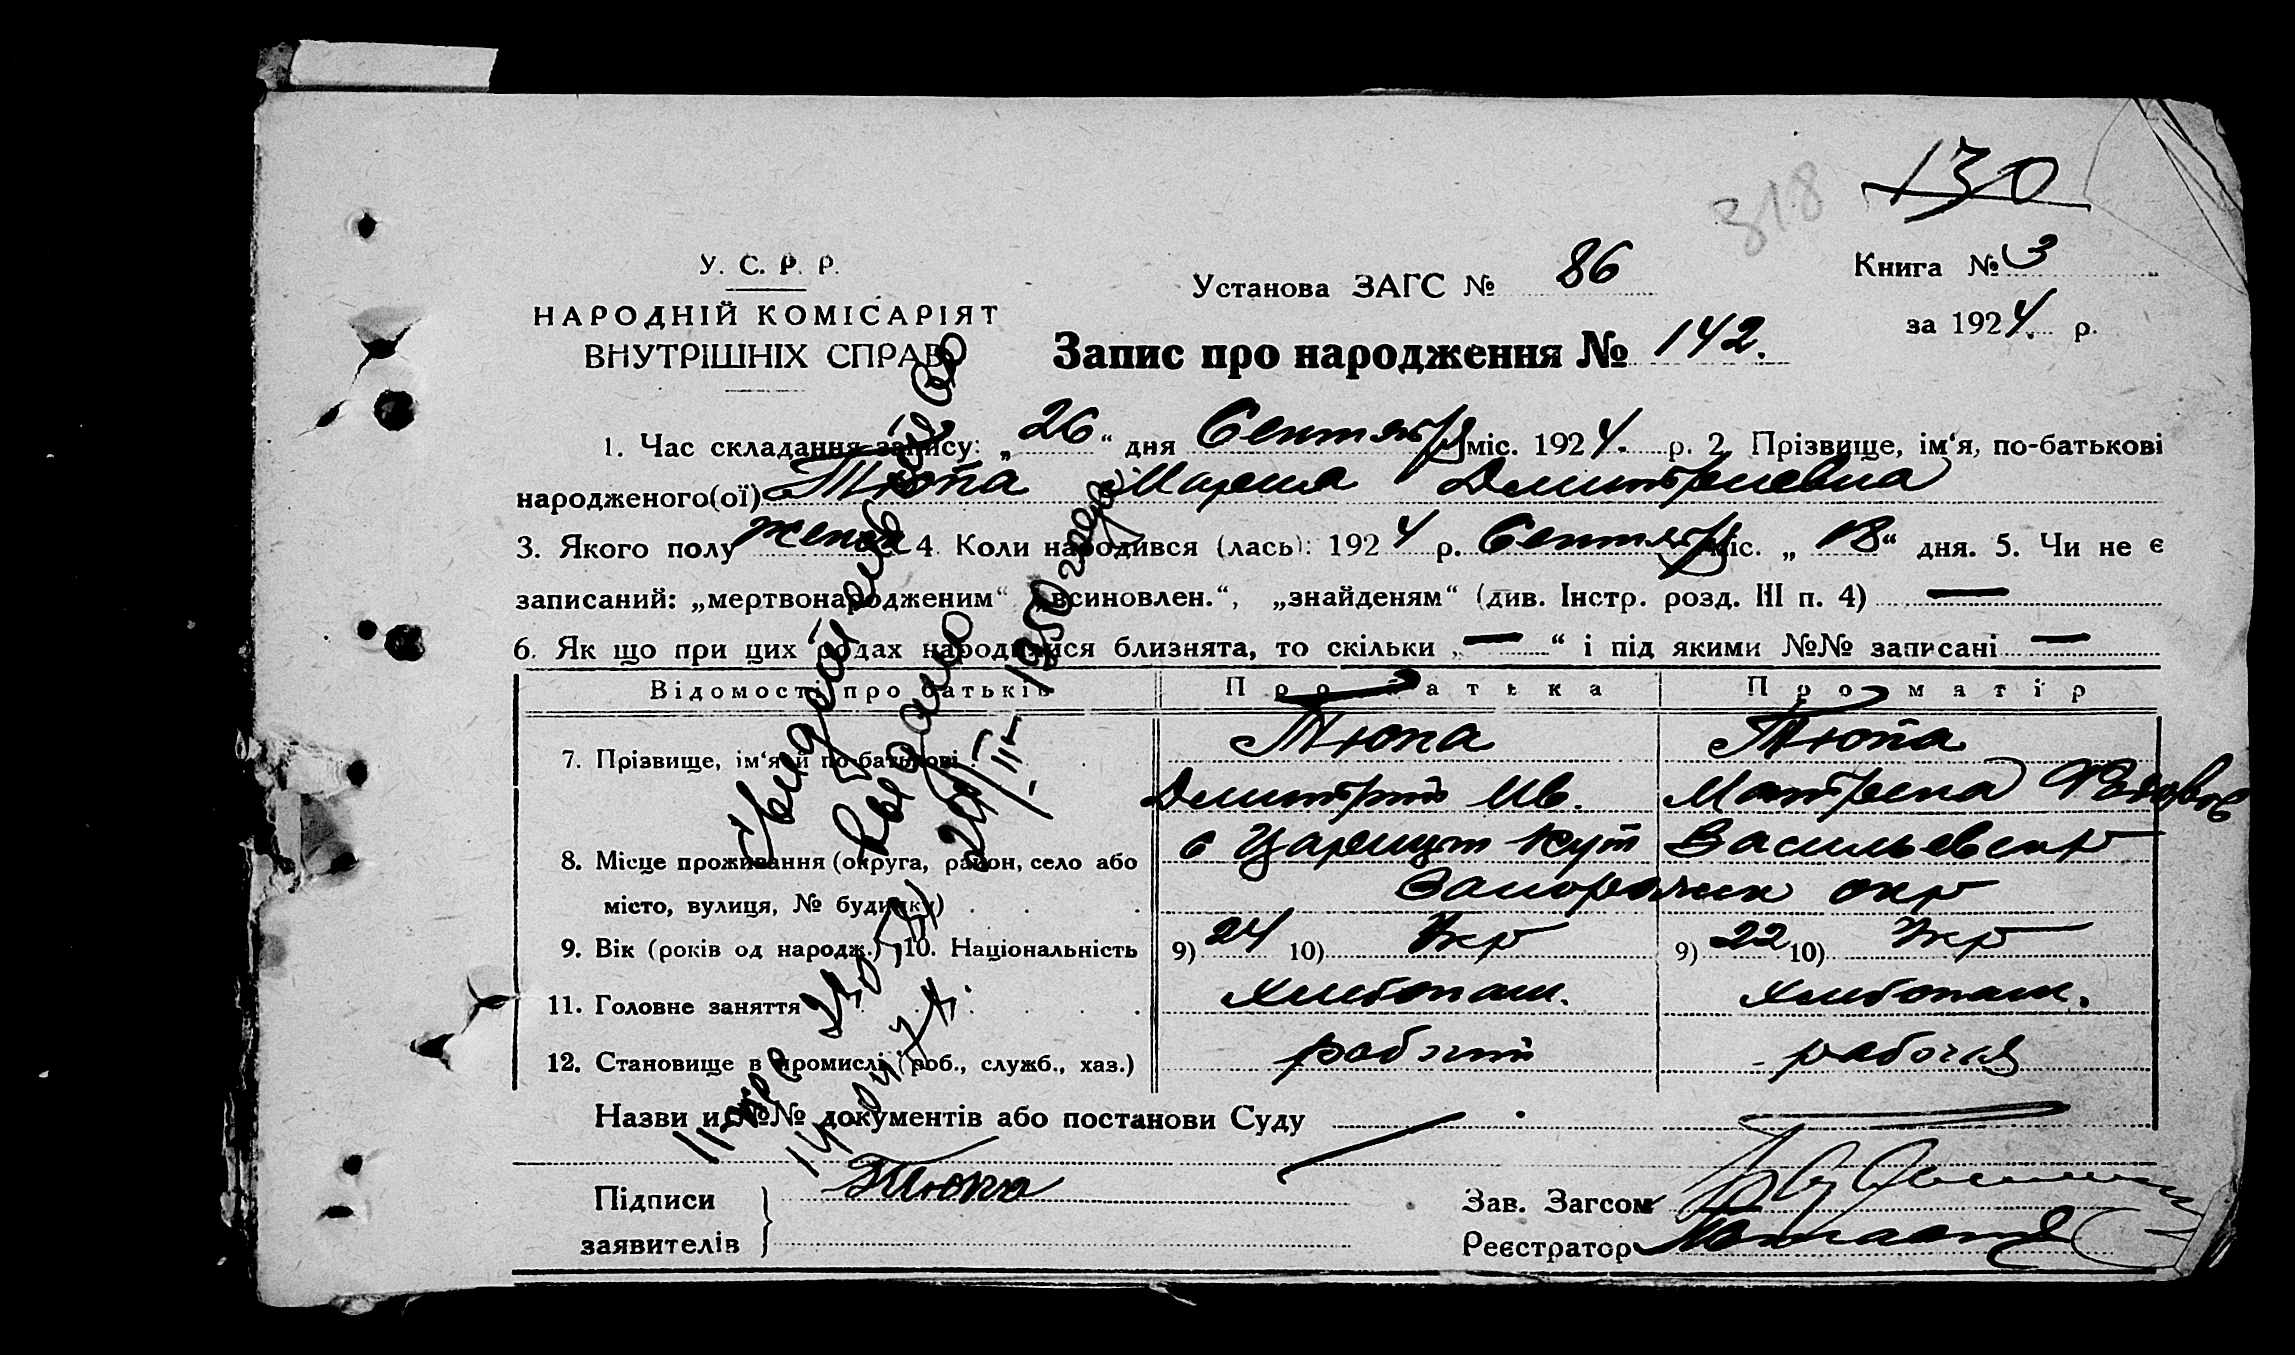 130
318
У. С. Р. Р.
Установа ЗАГС № 86
Книга № 3
НАРОДНІЙ КОМІСАРІЯТ
за 1924 р.
ВНУТРІШНІХ СПРАВ
Запис про народження № 142.
1. Час складання запису: „26“ дня Сентябр міс. 1924. р. 2. Прізвище, ім‘я, по-батькові
народженого(ої) Тюпа Мария Дмитриевна
3. Якого полу женск 4. Коли народився (лась): 1924 р. Сентябр міс. „18“ дня. 5. Чи не є
записаний: „мертвонародженим“ „всиновлен.“, „знайденям“ (див. Інстр. розд. III п. 4) —
6. Як що при цих родах народилися близнята, то скільки „—“ і під якими №№ записані —
Відомості про батьків
Про батька
Про матір
7. Прізвище, ім‘я й по-батькові
Тюпа
Тюпа
Дмитрий Ив.
Матрена
8. Місце проживання (округа, район, село або
с Царицын Кут
Васильевск р
місто, вулиця, № будинку)
Запорожск окр
9. Вік (років од народж.) 10. Національність
9) 24 10) Укр
9) 22 10) Укр
11. Головне заняття
хлебопаш.
хлебопаш.
12. Становище в промислі (роб., служб., хаз.)
рабочий
рабочая
Назви и №№ документів або постанови Суду
Підписи
заявителів
Тюпа
Зав. Загсом
Реєстратор
выдано
1950 года